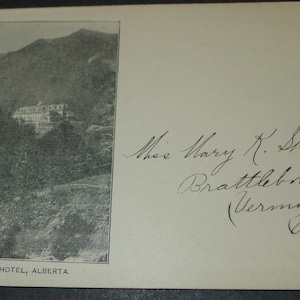 HOTEL, ALBERTA.
Miss Mary K.
Brattlebo
Vermo